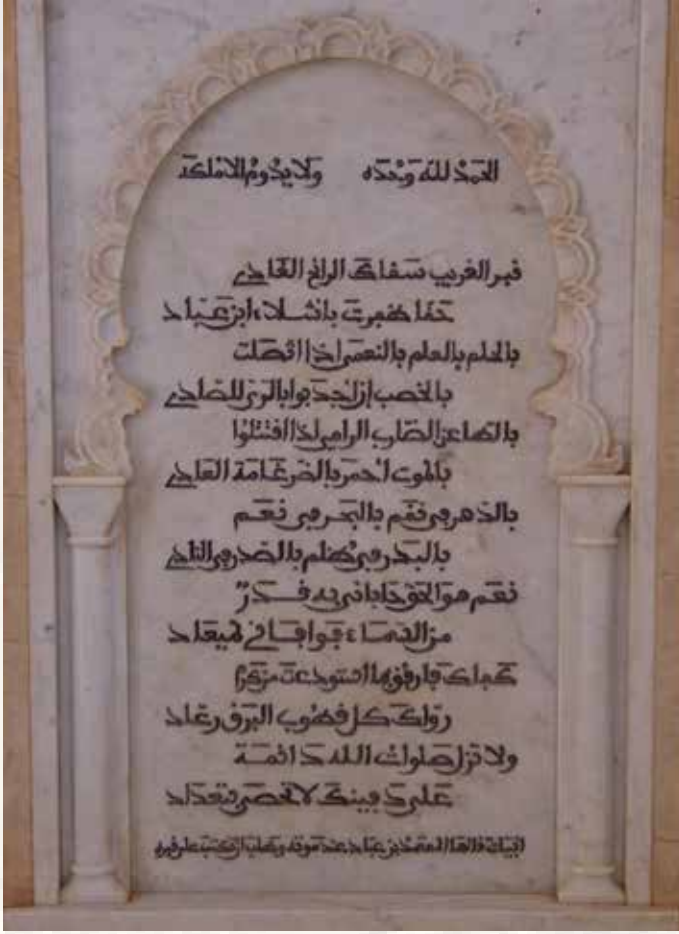 الحمد لله وحده ولا يدوم الا ملكه
قبر الغريب سقاك الرائح الغادي
حقا ظفرت باشلاء ابن عباد
بالحلم بالعلم بالنعمى اذا اتصلت
بالخصب إن اجدبوا بالري للصادي
بالطاعن الضارب الرامي اذا اقتتلوا
بالموت احمر بالضرغامة العادي
بالدهر في نقم بالبحر في نعم
بالبدر في ظلم بالصدر في النادي
نعم هو الحق حاباني به قدر
من السماء فوافاني لميعاد
كفاك فارفق بما استودعت من كرم
رواك كل قطوب البرق رعاد
ولا تزل صلوات الله دائمة
على دفينك لا تحصى بتعداد
ابيات قالها المعتمد بن عباد عند موته وطلب ان تكتب على قبره